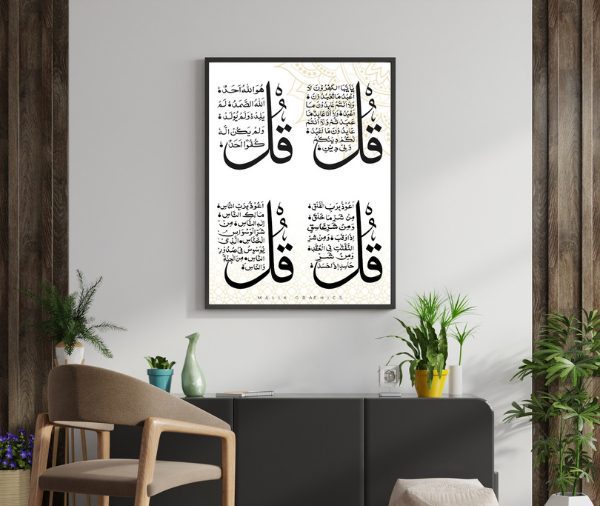 قُلْ
يَا يُّهَا الْكٰفِرُونَ لَا
أَعْبُدُ مَا تَعْبُدُونَ
وَلَا أَنْتُمْ عَابِدُونَ مَا
أَعْبُدُ وَلَا أَنَا عَابِدٌ مَا
عَبَدْتُمْ وَلَا أَنْتُمْ
عَابِدُونَ مَا أَعْبُدُ
لَكُمْ دِينُكُمْ
وَلِيَ دِينِ
قُلْ
هُوَ اللهُ أَحَدٌ
اَللهُ الصَّمَدُ لَمْ
يَلِدْ وَلَمْ يُولَدْ
وَلَمْ يَكُنْ لَّهُ
كُفُوًا أَحَدٌ
قُلْ
أَعُوذُ بِرَبِّ الْفَلَقِ
مِنْ شَرِّ مَا خَلَقَ
وَمِنْ شَرِّ غَاسِقٍ
إِذَا وَقَبَ وَمِنْ شَرِّ
النَّفّٰثٰتِ فِي الْعُقَدِ
وَمِنْ شَرِّ
حَاسِدٍ إِذَا حَسَدَ
قُلْ
أَعُوذُ بِرَبِّ النَّاسِ
مَالِكِ النَّاسِ
إِلٰهِ النَّاسِ مِنْ
شَرِّ الْوَسْوَاسِ
الْخَنَّاسِ الَّذِي
يُوَسْوِسُ فِي صُدُورِ
النَّاسِ مِنَ الْجِنَّةِ
وَالنَّاسِ
MALIK GRAPHICS